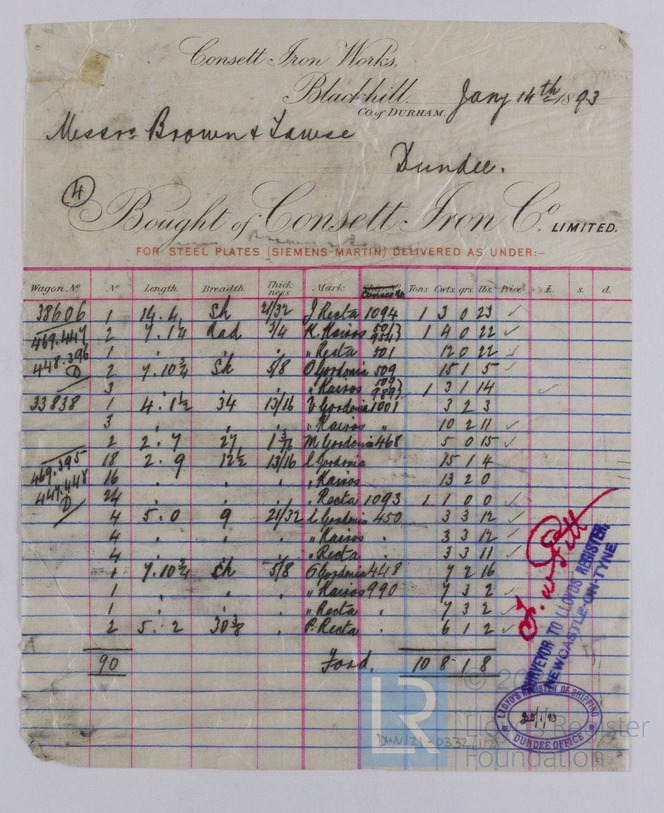 Consett Iron Works,
Blackhill.
CO. of DURHAM.
Jany 14th 1893
Messrs Brown &
Dundee.
4
Bought of Consett Iron Co. LIMITED.
FOR STEEL PLATES (SIEMENS-MARTIN) DELIVERED AS UNDER:-
Wagon No. No. Length Breadth Thickness Mark Tons Cwts. qrs. lbs. Price £. s. d.
38606 1 14.4 Sk 21/32 J Recta 1094 1 3 0 23
469.447 2 7.1½ Rad 3/4 K. Kairos 1 4 0 22
448.396 1 " " " " Recta 501 12 0 22
D 2 7.10¾ Sk 5/8 O Gordonia 509 15 1 5
3 " " " " Kairos 1 3 1 14
33838 1 4.1½ 34 13/16 Gordonia 1001 3 2 3
3 " " " " Kairos " 10 2 11
2 2.7 27 M Gordonia 468 5 0 15
469.395 18 2.9 12½ 13/16 Gordonia 15 1 4
447.448 16 " " " " Kairos 13 2 0
D 24 " " " " Recta 1093 1 1 0 0
4 5.0 9 21/32 L Gordonia 450 3 3 12
4 " " " " Kairos " 3 3 12
4 " " " " Recta 3 3 11
1 7.10¾ Sk 5/8 Gordonia 448 7 2 16
1 " " " " Kairos 990 7 3 2
1 " " " " Recta " 7 3 2
2 5.2 30⅜ " P. Recta " 6 1 2
90 Ford 10 8 1 8
SURVEYOR TO LLOYDS REGISTER,
NEWCASTLE-ON-TYNE
LLOYD'S REGISTER OF SHIPPING
DUNDEE OFFICE
LR
Lloyd's Register
Foundation